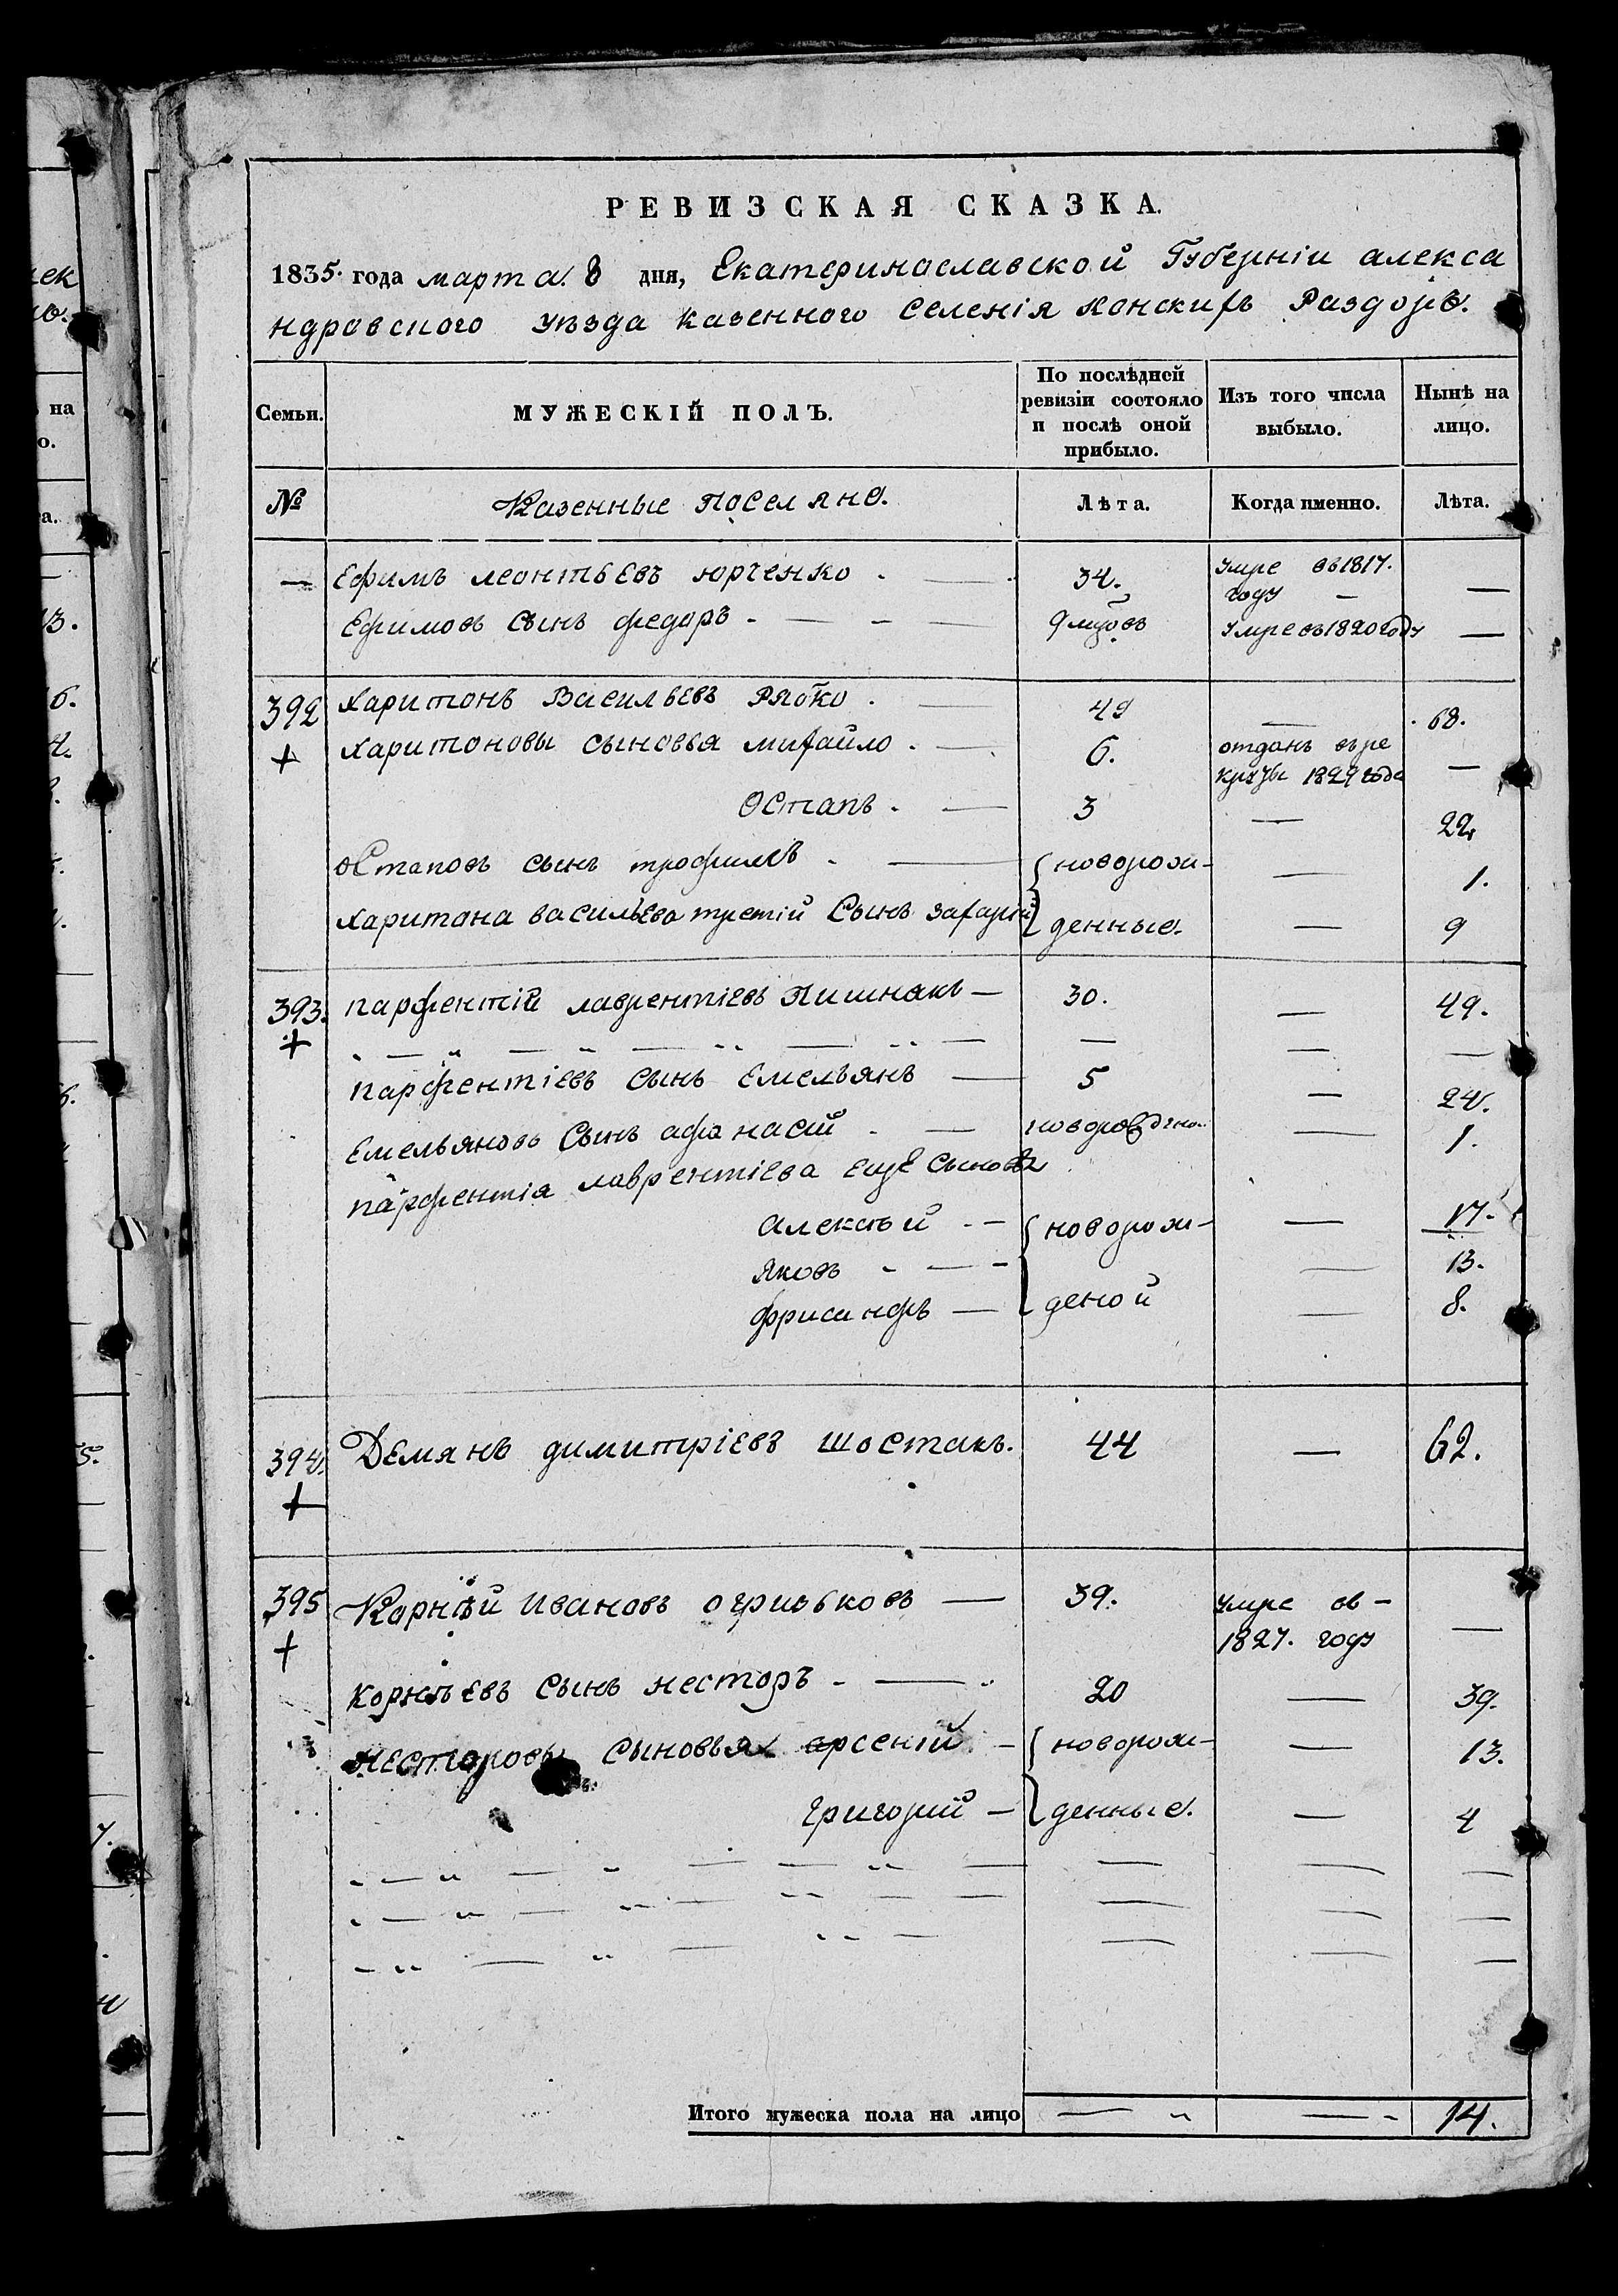 РЕВИЗСКАЯ СКАЗКА.
1835. года марта 8 дня, Екатеринославской Губерніи алекса
ндровского уѣзда казенного Селенія Конскихъ Раздоръ.
Семьи. МУЖЕСКІЙ ПОЛЪ. По послѣдней ревизіи состояло и послѣ оной прибыло. Изъ того числа выбыло. Нынѣ на лицо.
№ Казенные поселяне. Лѣта. Когда именно. Лѣта.
— Ефимъ леонтьевъ юрченко . — 34. умре въ 1817. году — —
Ефимовъ сынъ федоръ - — - — 9 мцовъ умре въ 1820 году —
392 Харитонъ Васильевъ Рябко . — 49 — 68.
+ Харитоновы сыновья михайло . — 6. отданъ въ рекруты 1829 года —
Остапъ . — 3 — 22
Остаповъ сынъ трофимъ . — { новорож- — 1.
Харитона васильева третій Сынъ захарій } денные. — 9
393. парфентій лаврентіевъ Пишнакъ — 30. — 49.
+ - — „ — - — „ — „ - — — — —
парфентіевъ сынъ Емельянъ — 5 — 24.
Емельяновъ Сынъ афанасій . — новорожден. — 1.
парфентія лаврентіева еще сыновья
Алексѣй - — { новорож- — 17.
Яковъ - — - — 13.
фрисанфъ — { деной — 8.
394. Демянъ димитріевъ шостакъ. 44 — 62.
+
395 Корнѣй Ивановъ огризковъ — 39. умре въ - 1827. году —
+
Корнѣевъ сынъ несторъ - — „ 20 — 39.
Несторовы сыновья арсеній - { новорож- — 13.
григорий — { денные. — 4
- — „ — - — — „ — — — —
- — „ — „ — „ — — — — —
- „ — „ — „ — — — —
Итого мужеска пола на лицо — „ — - 14.
ек
на
о.
а.
13.
6.
5.
7.